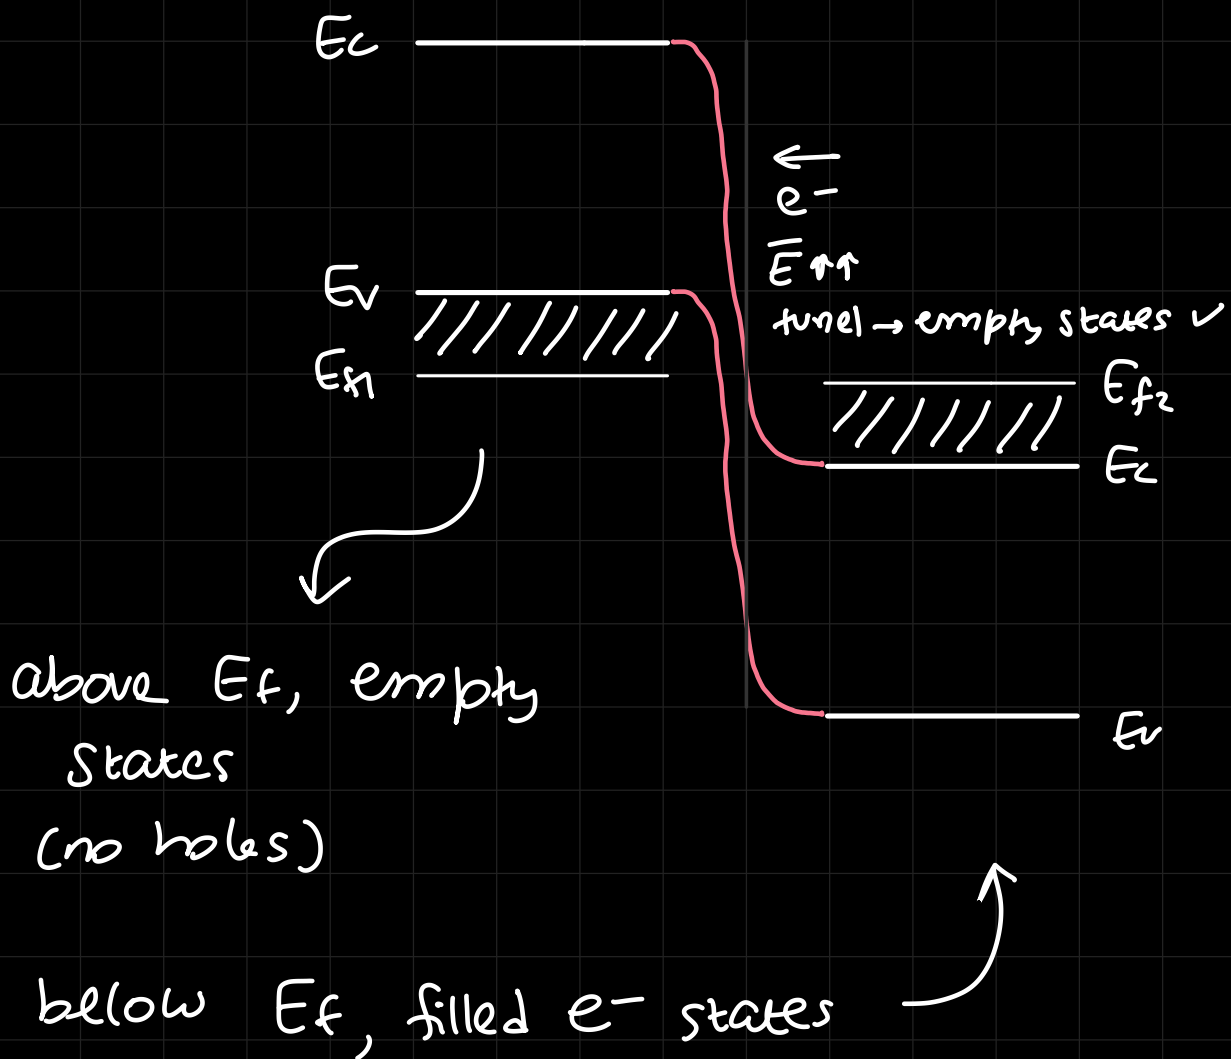 Ec
← e⁻
Ev
E ↑↑
tunel → empty states ✓
Ef1
Ef2
Ec
above Ef, empty
states
(no holes)
Ev
below Ef, filled e⁻ states